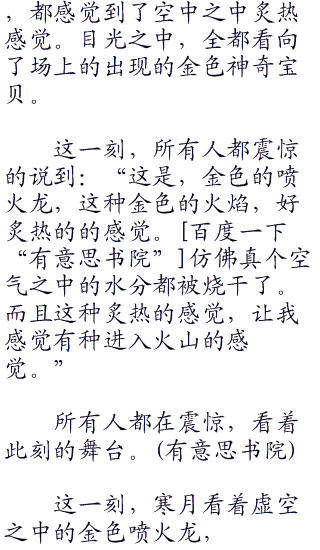 ，都感觉到了空中之中炙热
感觉。目光之中，全都看向
了场上的出现的金色神奇宝
贝。
这一刻，所有人都震惊
的说到：“这是，金色的喷
火龙，这种金色的火焰，好
炙热的的感觉。[百度一下
“有意思书院”]仿佛真个空
气之中的水分都被烧干了。
而且这种炙热的感觉，让我
感觉有种进入火山的感
觉。”
所有人都在震惊，看着
此刻的舞台。(有意思书院)
这一刻，寒月看着虚空
之中的金色喷火龙，